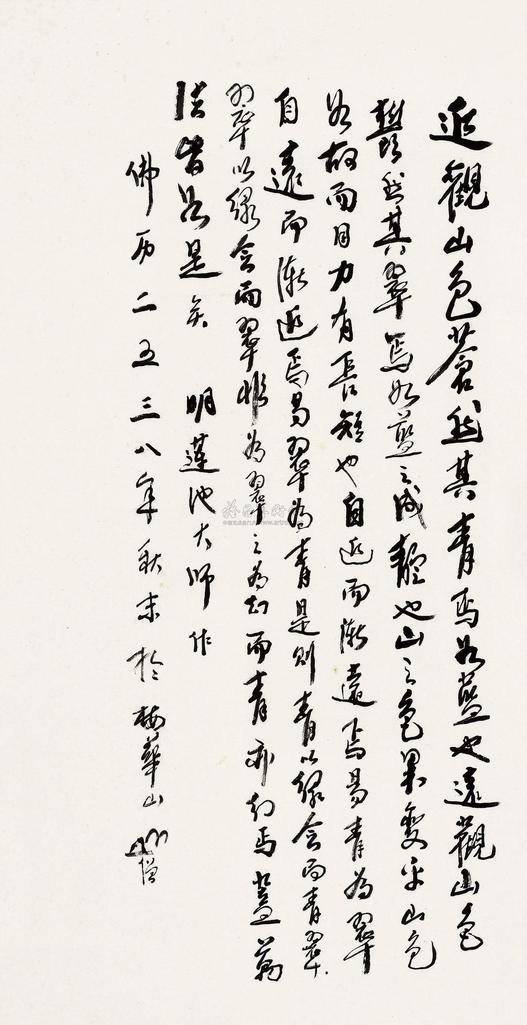 近觀山色蒼然其青焉如藍也遠觀山色
鬱然其翠焉如藍之成靛也山之色果變乎山色
如故而目力有長短也自近而漸遠焉易青為翠
自遠而漸近焉易翠為青是則青以緣會而青翠
翠以緣會而翠惟為翠之為幻而青亦幻焉蓋萬
法皆如是矣 明蓮池大師作
佛历二五三八年秋末於梅華山 僧